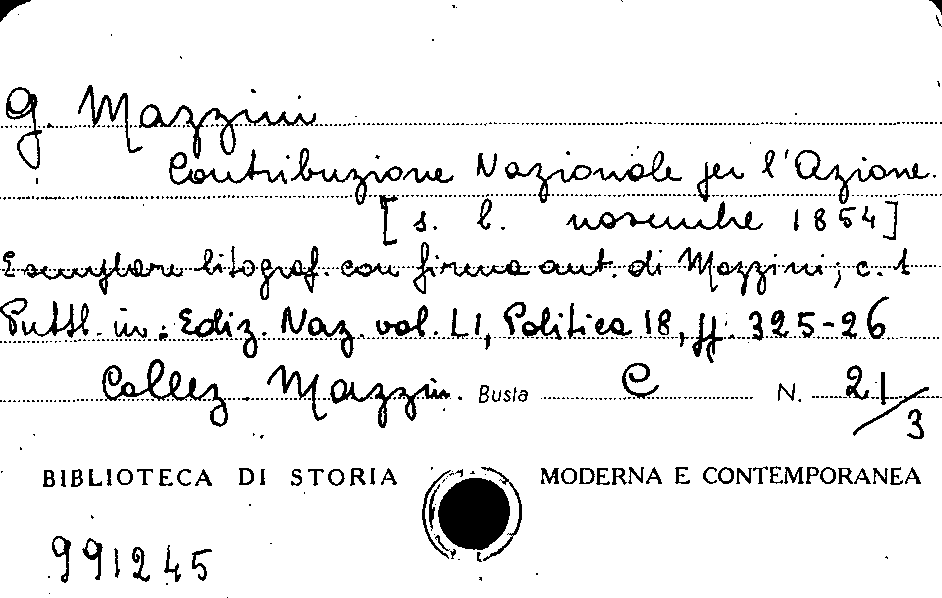 G. Mazzini
Contribuzione Nazionale per l'Azione.
[s. l. novembre 1854]
Esemplare litograf. con firma aut. di Mazzini; c. 1
Pubbl. in: Ediz. Naz. vol. LI, Politica 18, pp. 325-26
Collez. Mazzini. Busta C N. 21/3
BIBLIOTECA DI STORIA MODERNA E CONTEMPORANEA
991245